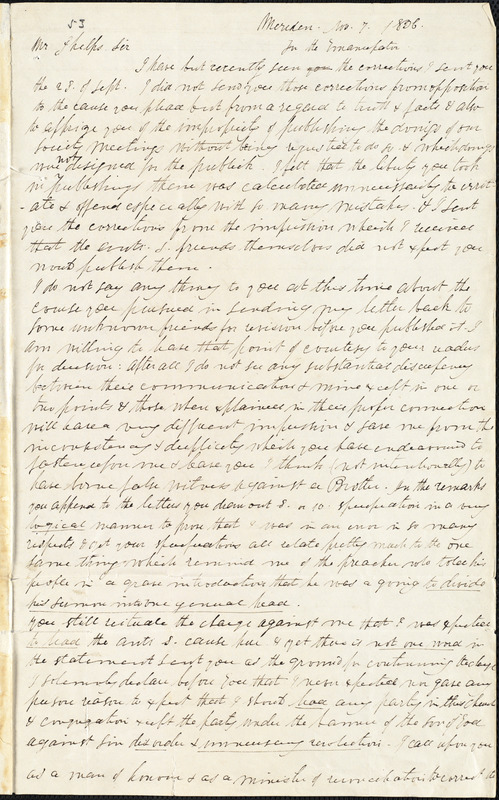 53
Meriden. Nov. 7. 1836.
Mr Phelps Sir In the Emancipator
I have but recently seen the corrections I sent you
the 28. of Sept. I did not send you those corrections from opposition
to the cause you plead but from a regard to truth & facts & also
to apprize you of the impropriety of publishing the doings of our
society meetings without being requested to do so & which doings
were not designed for the publick. I felt that the liberty you took
in publishing them was calculated unnecessarily to
-ate & offend especially with so many mistakes. & I sent
you the corrections from the impression which I received
that the anti. S. friends themselves did not expect you
would publish them.
I do not say any thing to you at this time about the
course you pursued in sending my letter back to
some unknown friends for revision before you published it. I
am willing to leave that point of courtesy to your readers
for decision: after all I do not see any substantial discrepancy
between their communication & mine except in one or
two points & those when explained in their proper connection
will leave a very different impression & save me from the
inconsistency & duplicity which you have endeavored to
fasten upon me & leave you I think (not intentionally) to
have borne false witness against a Brother. In the remarks
you append to the letters you draw out 8. or 10. specifications in a very
logical manner to prove that I was in an error in so many
respects & yet your specifications all relate pretty much to the one
same thing which remind me of the preacher who told his
people in a grave introduction that he was a going to divide
his sermon into one general head.
You still reiterate the charge against me that I was expected
to lead the anti S. cause here & yet there is not one word in
the statement I sent you as the ground for continuing the charge
I solemnly declare before God that I never expected nor gave any
person reason to expect that I should lead any party in this Church
& congregation except the party under the banner of the Son of God
against sin disorder & unnecessary . I call upon you
as a man of honour & as a minister of reconciliation to correct the